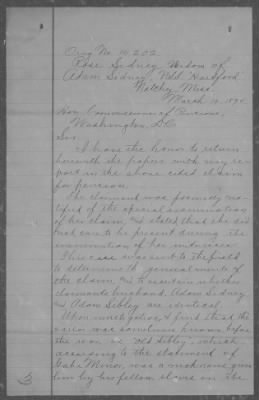 Orig No 16,202
Rose Sidney Widow of
Adam Sidney
Natchez Miss.
March 19, 189
Hon. Commissioner of Pensions,
Washington, D.C.
Sir:
I have the honor to return
herewith the papers with my re-
port in the above cited claim
for pension.
The claimant was formally no-
tified of the special examination
of her claim, and stated that she did
not care to be present during the
examination of her witnesses
This case was sent to the field
to determine the general merits of
the claim, and to ascertain whether
claimants husband, Adam Sidney
and Adam Sibley are identical.
Upon investigation, I find that the
was sometimes known before
the war as "Old Sibley", which
according to the statement of
Gabe Minor, was a nickname given
him by his fellow slaves on the
3